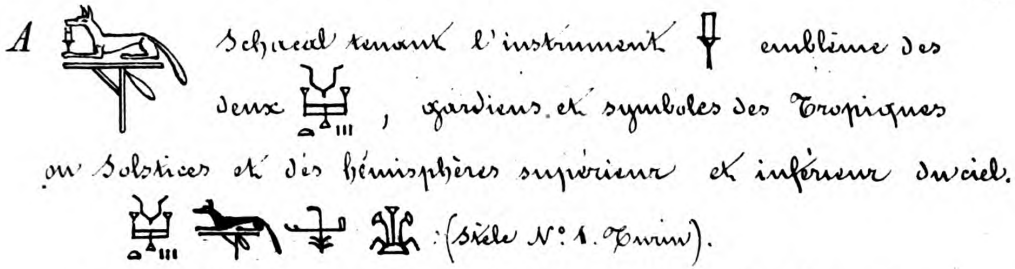 A Schacal tenant l'instrument emblème des
deux , gardiens et symboles des Tropiques
ou Solstices et des hémisphères supérieur et inférieur du ciel.
: (Stèle N.º 1. Turin).